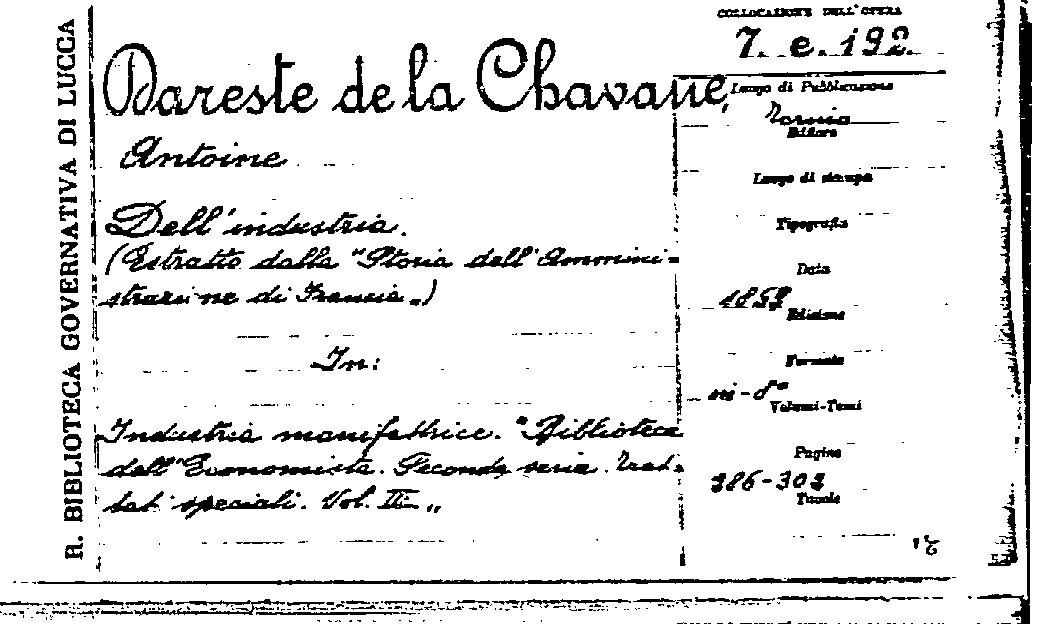 R. BIBLIOTECA GOVERNATIVA DI LUCCA
COLLOCAZIONE DELL'OPERA
7. e. 192.
Dareste de la Chavanne,
Antoine
Dell'industria.
(Estratto dalla "Storia dell'Ammini=
strazione di Francia„)
In:
Industria manifattrice. "Biblioteca
dell'Economista. Seconda serie. Trat=
tati speciali. Vol. II„
Luogo di Pubblicazione
Torino
Editore
Luogo di stampa
Tipografia
Data
Edizione
Formato
in-8°
Volumi-Tomi
Pagine
286-303
Tavole